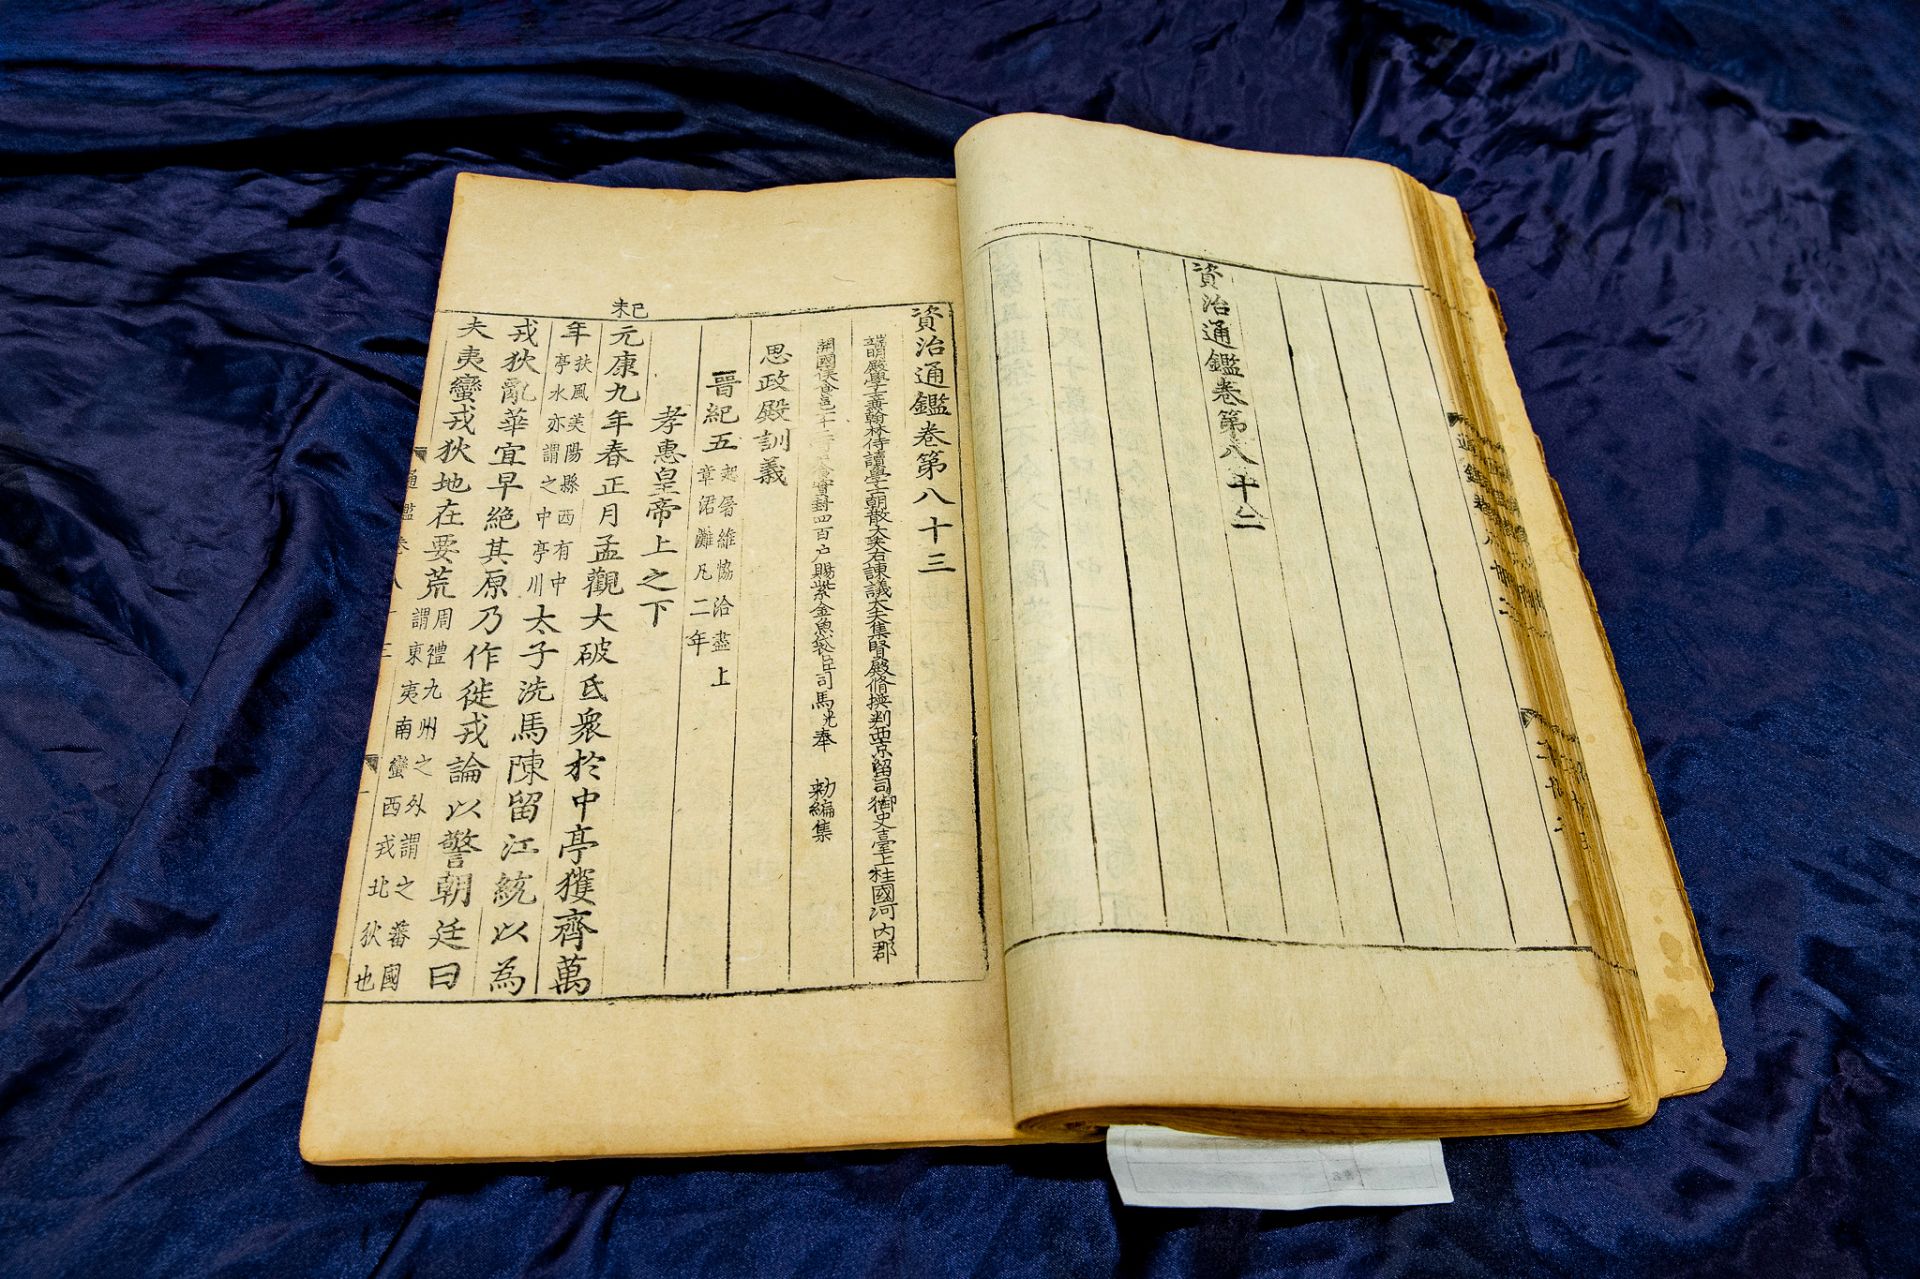 資治通鑑卷第八十二
資治通鑑卷第八十三
端明殿學士兼翰林侍讀學士朝散大夫右諫議大夫集賢殿脩撰判西京留司御史臺上柱國河內郡
開國侯食邑千三百戶食實封四百戶賜紫金魚袋臣司馬光奉 勑編集
思政殿訓義
晉紀五 起屠維協洽盡上
章涒灘凡二年
孝惠皇帝上之下
己未
元康九年春正月孟觀大破氐衆於中亭獲齊萬
年 扶風美陽縣西有中
亭水亦謂之中亭川 太子洗馬陳留江統以為
戎狄亂華宜早絕其原乃作徙戎論以警朝廷曰
夫夷蠻戎狄地在要荒 周禮九州之外謂之蕃國
謂東夷南蠻西戎北狄也